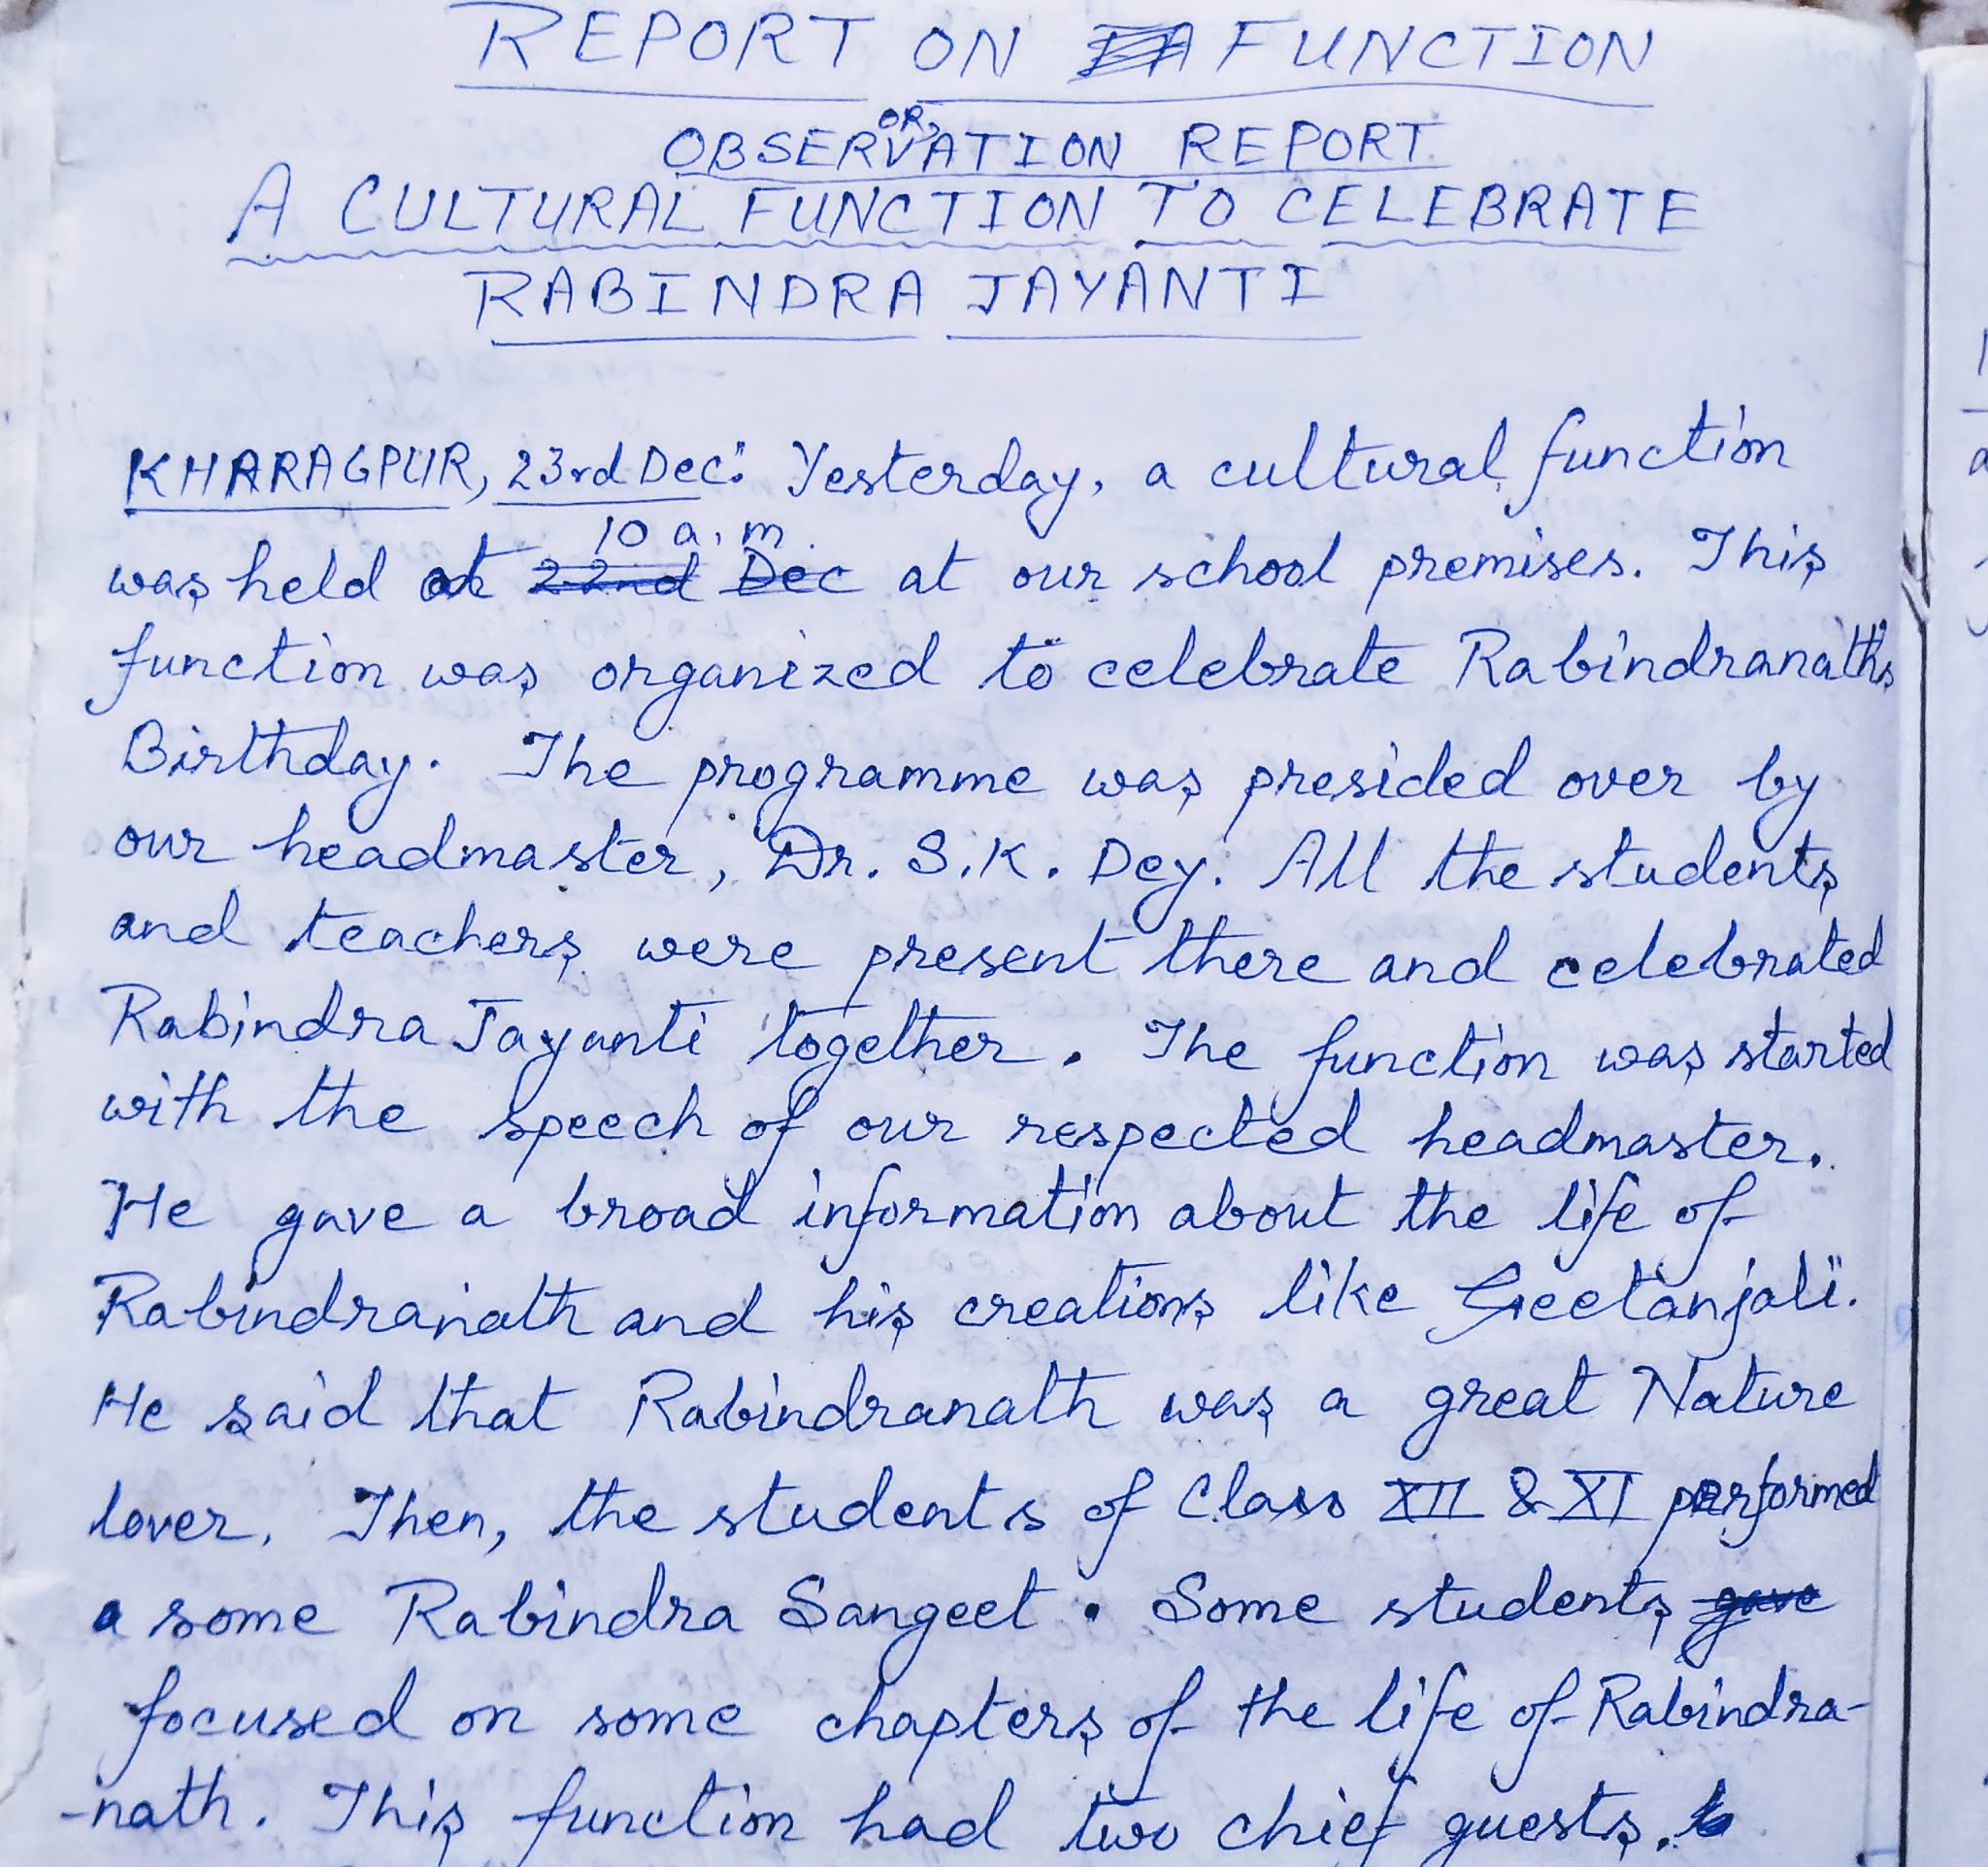 REPORT ON A FUNCTION
OR
OBSERVATION REPORT
A CULTURAL FUNCTION TO CELEBRATE
RABINDRA JAYANTI
KHARAGPUR, 23rd Dec: Yesterday, a cultural function
10 a.m.
was held at 22nd Dec at our school premises. This
function was organized to celebrate Rabindranath's
Birthday. The programme was presided over by
our headmaster, Dr. S.K. Dey. All the students
and teachers were present there and celebrated
Rabindra Jayanti together. The function was started
with the speech of our respected headmaster.
He gave a broad information about the life of
Rabindranath and his creations like Geetanjali".
He said that Rabindranath was a great Nature
lover. Then, the students of Class XII & XI performed
a some Rabindra Sangeet. Some students gave
focused on some chapters of the life of Rabindra-
-nath. This function had two chief guests.